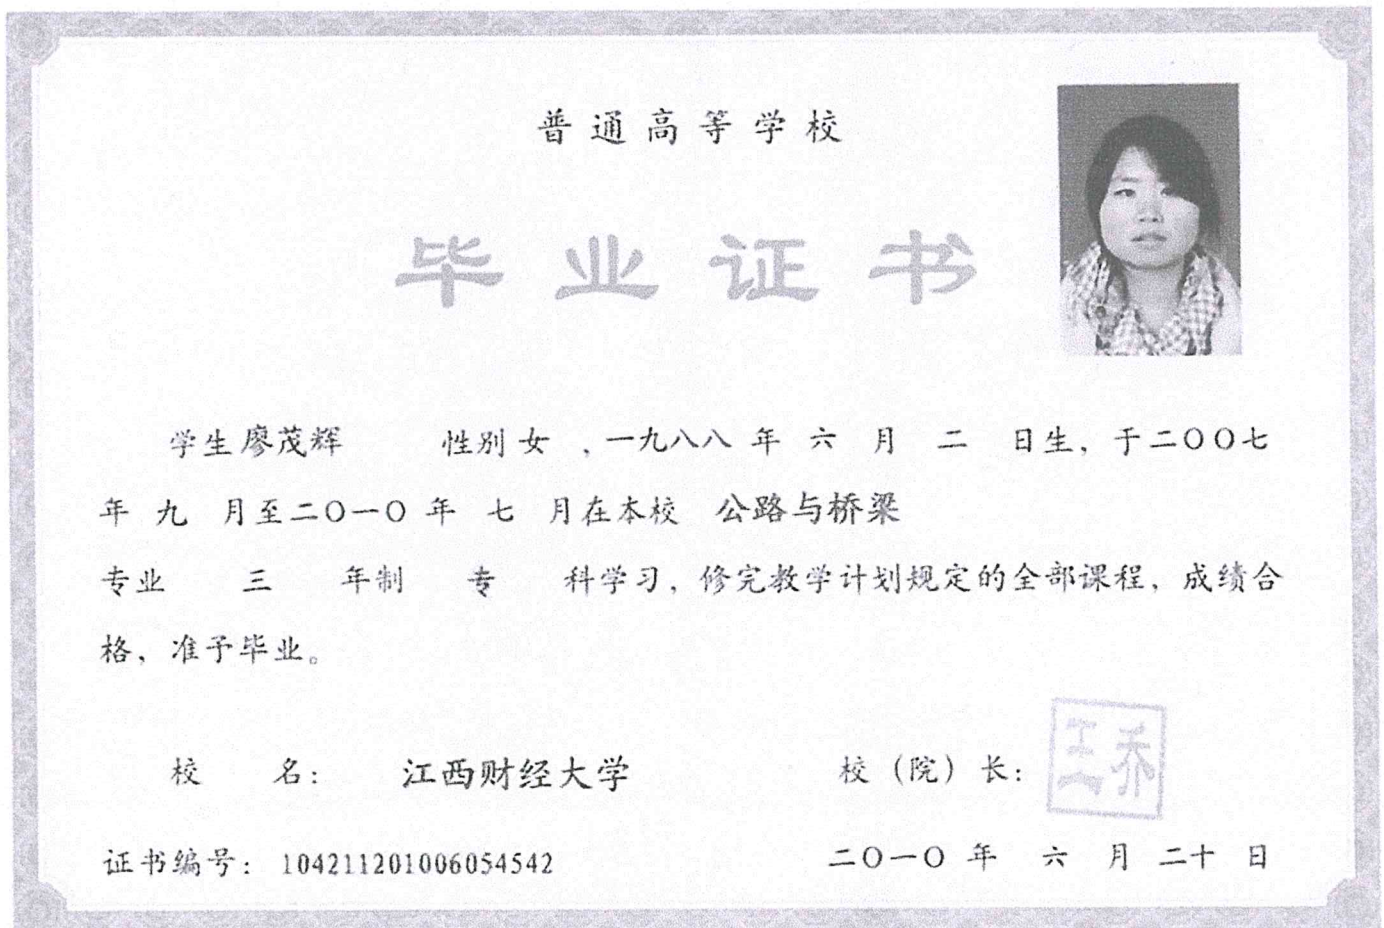 普通高等学校
毕业证书
学生廖茂辉 性别女 ,一九八八 年 六 月 二 日生，于二〇〇七
年 九 月至二〇一〇 年 七 月在本校 公路与桥梁
专业 三 年制 专 科学习，修完教学计划规定的全部课程，成绩合
格，准予毕业。
校 名： 江西财经大学 校（院）长： 王乔
证书编号： 104211201006054542 二〇一〇 年 六 月 二十 日